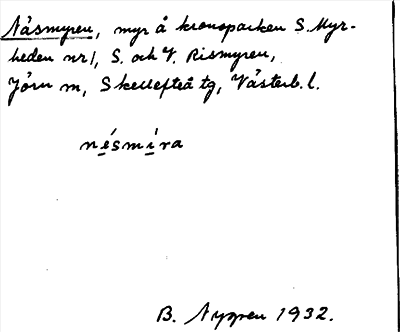 Nåsmyren, myr å kronoparken S. Myr-
heden nr 1, S. och V. Rismyren,
Jörn sn, Skellefteå tg, Västerb. l.
nésmira
B. Nygren 1932.